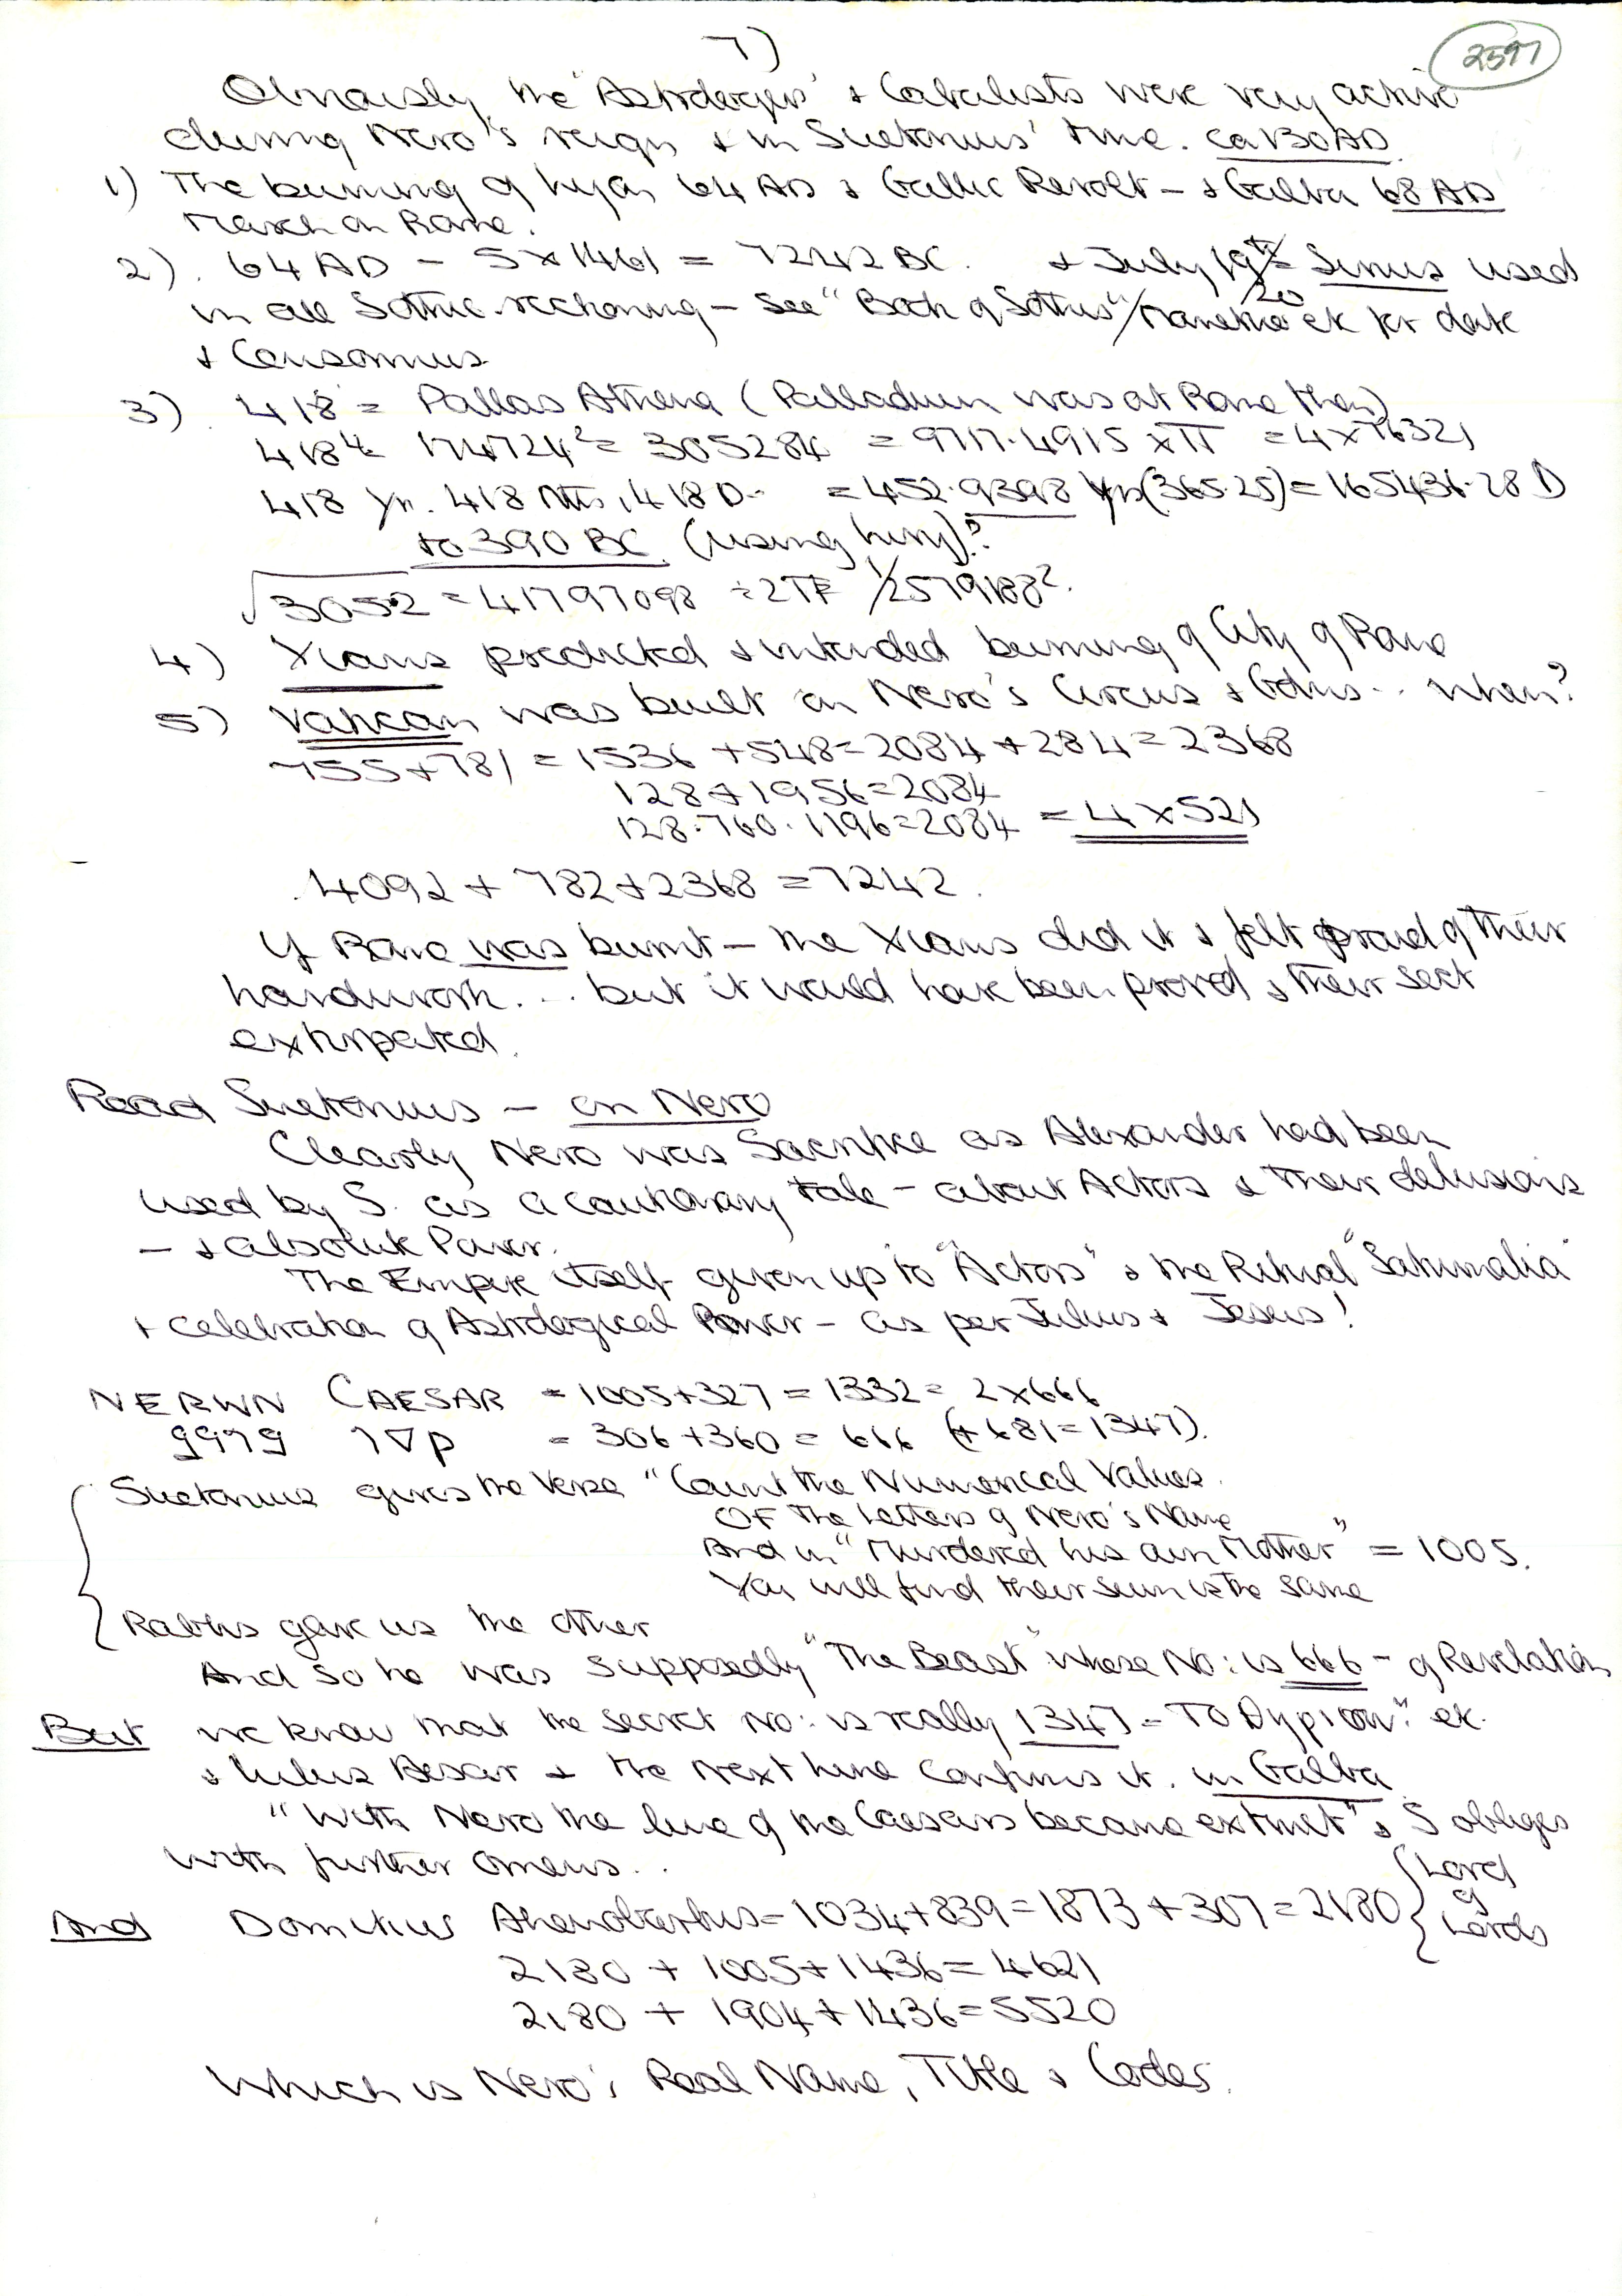 7)
2597
Obviously the 'Astrologers' & Cabalists were very active
during Nero's reign & in Suetonius' time. ca 130 AD.
1) The burning of Lyon 64 AD & Gallic Revolt - & Galba 68 AD
March on Rome.
2). 64 AD - 5 x 1461 = 7242 BC. & July 19th/20 = Sirius used
in all Sothic reckoning - See "Book of Sothis"/Manetho etc for date
& Censorinus
3) 418 = Pallas Athena (Palladium was at Rome then)
418 174724 = 305284 = 97177.4915 x π = 4 x 76321
418 yr. 418 Mths, 418 D. = 452.9398 Yrs (365.25) = 165436.28 D
to 390 BC. (using Livy)?
√3052 = 41797098 ÷ 2π 1/2579188².
4) Xians predicted & intended burning of City of Rome
5) Vatican was built on Nero's Circus & Gdns.. when?
755 + 781 = 1536 + 548 = 2084 + 284 = 2368
128 + 1956 = 2084
128.760.1196 = 2084 = 4 x 521
4092 + 782 + 2368 = 7242.
If Rome was burnt - the Xians did it & felt proud of their
handiwork... but it would have been proved & their sect
extirpated.
Read Suetonius - on Nero
Clearly Nero was Sacrifice as Alexander had been
used by S. as a cautionary tale - about Actors & their delusions
- & absolute Power.
The Empire itself given up to "Actors" & the Ritual "Saturnalia"
& celebration of Astrological Power - as per Julius & Jesus!
NERWN CAESAR = 1005 + 327 = 1332 = 2 x 666
= 306 + 360 = 666 (+ 681 = 1347).
Suetonius gives the Verse "Count the Numerical Values
Of the Letters of Nero's Name
And in "Murdered his own Mother" = 1005.
You will find their sum is the same
Rabbis gave us the other
And so he was supposedly "The Beast" whose No: is 666 - of Revelation
But we know that the secret No: is really 1347 = To etc.
& Julius & the next line confirms it. in Galba
"With Nero the line of the Caesars became extinct" & S obliges
with further omens..
And Domitius Ahenobarbus = 1034 + 839 = 1873 + 307 = 2180 { Lord of Lords
2180 + 1005 + 1436 = 4621
2180 + 1904 + 1436 = 5520
Which is Nero's Real Name, Title & Codes.